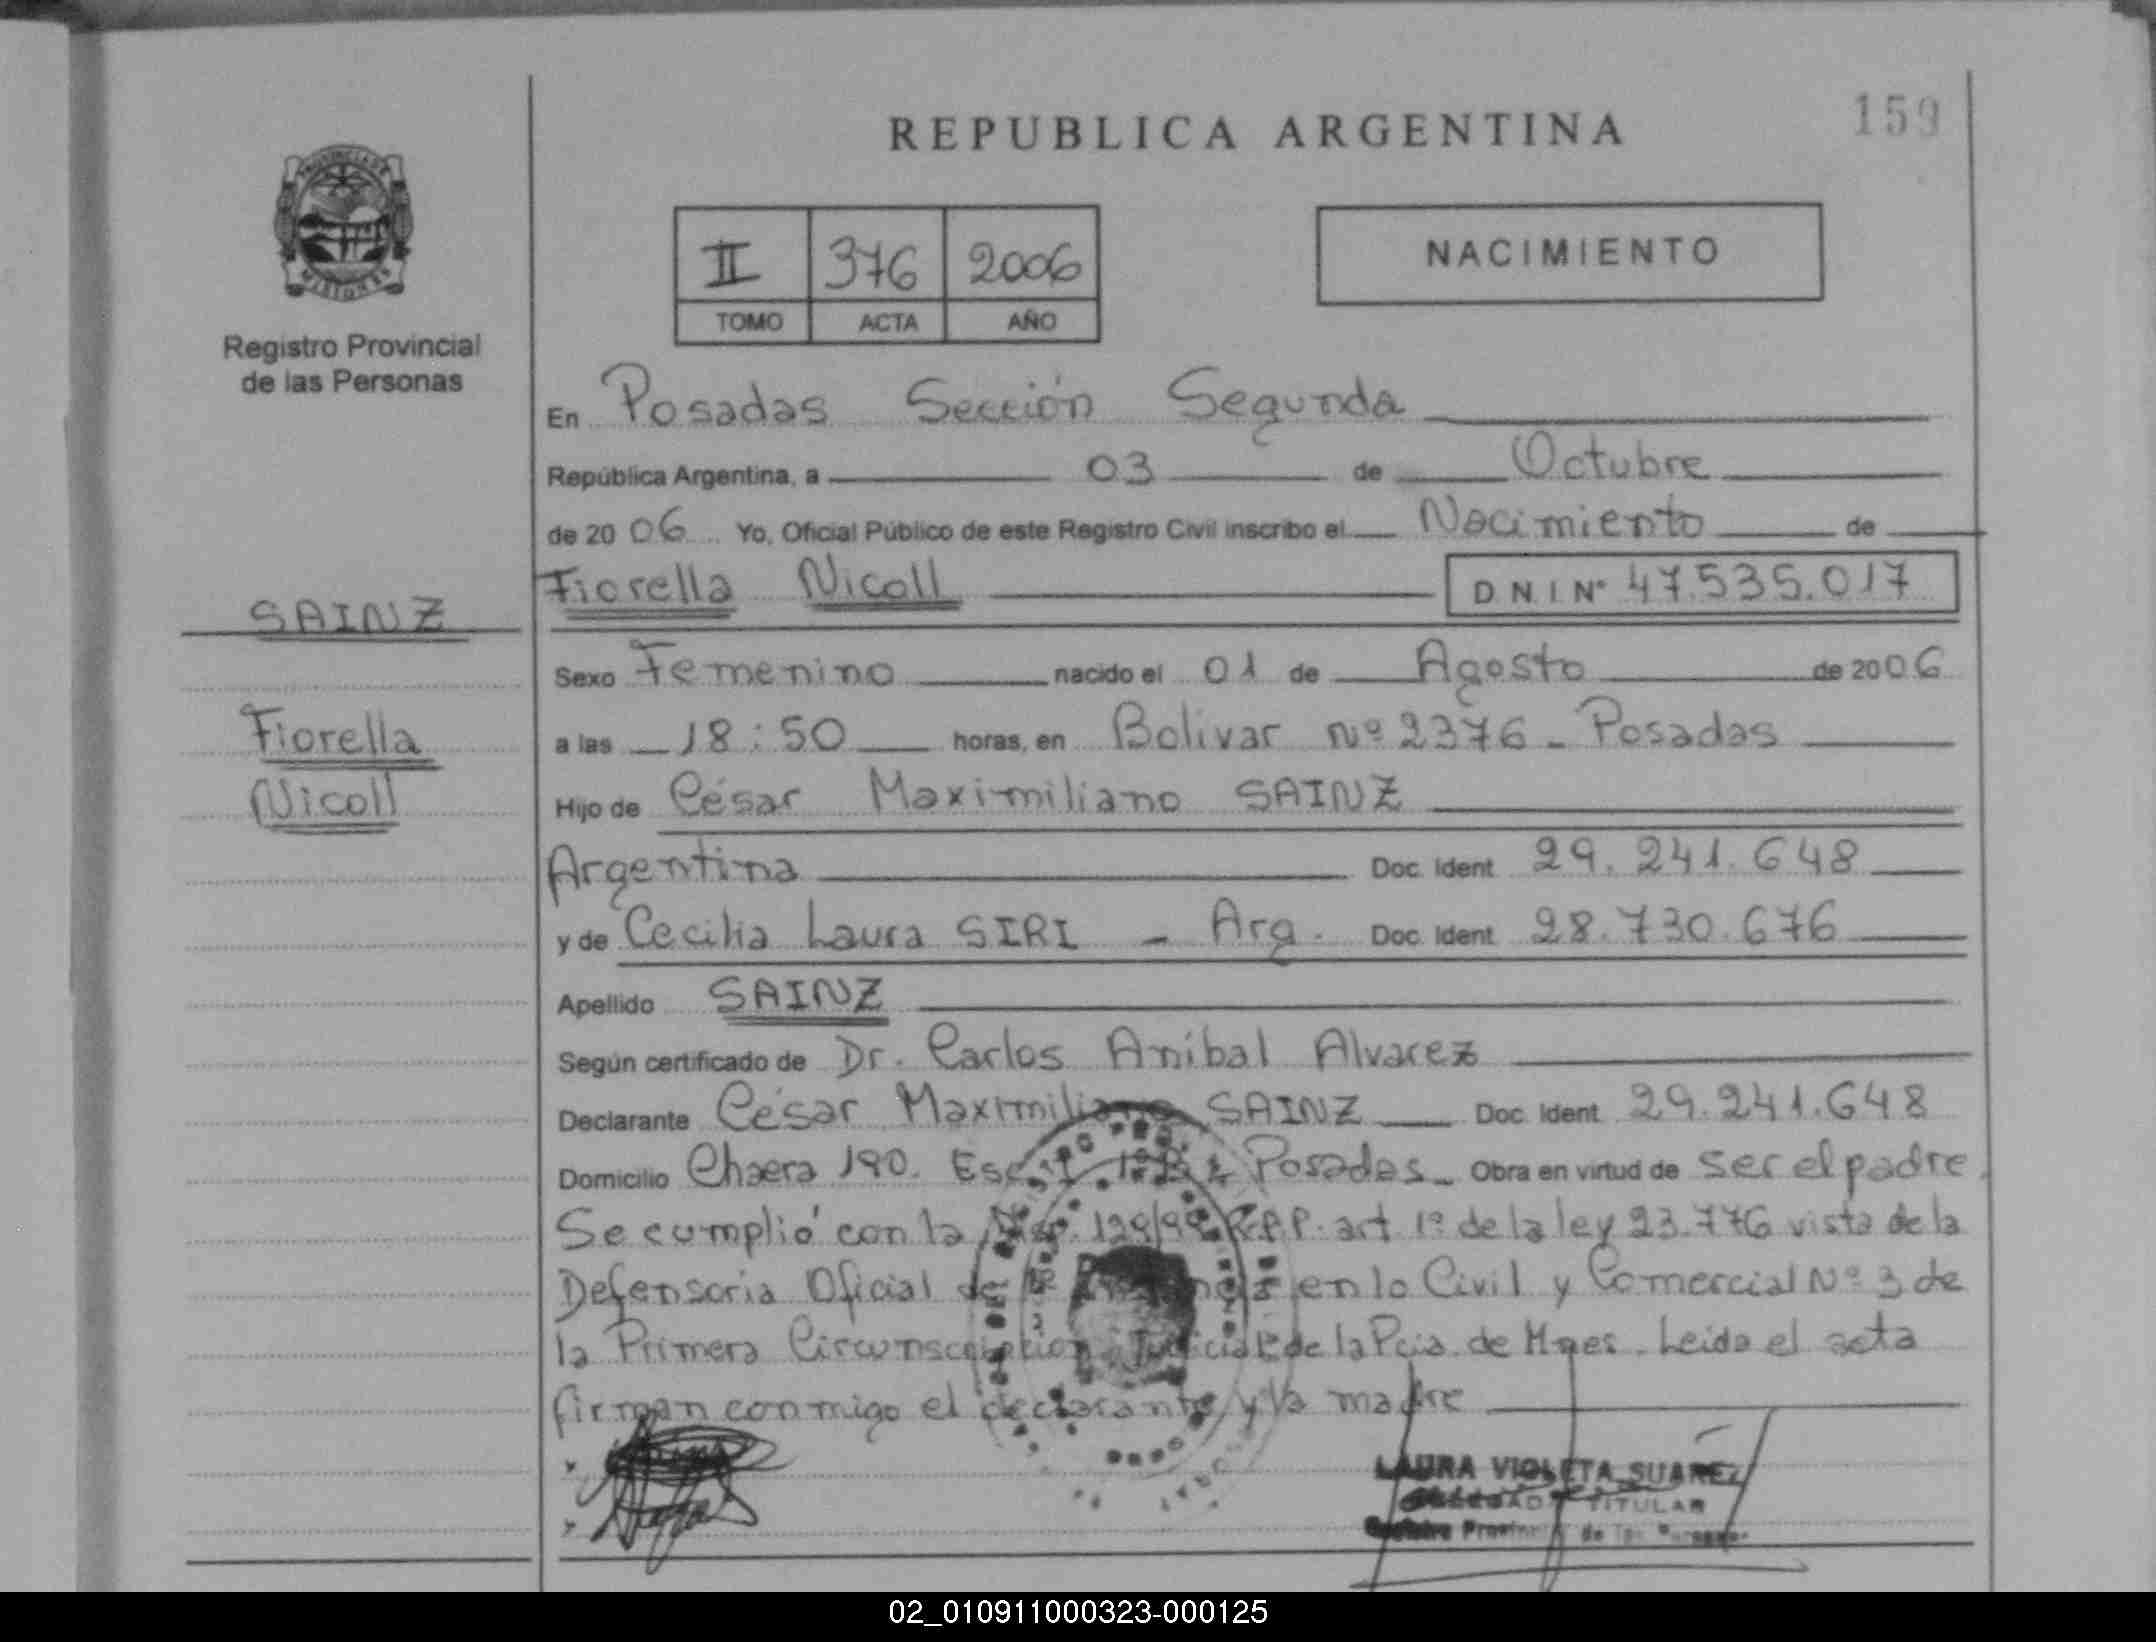 REPUBLICA ARGENTINA
159
PROVINCIA DE
MISIONES
Registro Provincial
de las Personas
II 376 2006
TOMO ACTA AÑO
NACIMIENTO
En Posadas Sección Segunda
República Argentina, a 03 de Octubre
de 2006 Yo, Oficial Público de este Registro Civil inscribo el Nacimiento de
Fiorella Nicoll D.N.I Nº 47.535.017
SAINZ
Fiorella
Nicoll
Sexo Femenino nacido el 01 de Agosto de 2006
a las 18:50 horas, en Bolivar Nº 2376 - Posadas
Hijo de César Maximiliano SAINZ
Argentina Doc. Ident 29.241.648
y de Cecilia Laura SIRI - Arg. Doc. Ident 28.730.676
Apellido SAINZ
Según certificado de Dr. Carlos Aníbal Alvarez
Declarante César Maximiliano SAINZ Doc. Ident 29.241.648
Domicilio 190. Posadas - Obra en virtud de ser el padre.
Se cumplió con la Disp. R.P.P. art. 1º de la ley 23.776 vista de la
Defensoria Oficial de en lo Civil y Comercial Nº 3 de
la Primera Circunscripción Judicial de la Pcia. de Mnes. Leida el acta
firman conmigo el declarante y la madre
LAURA VIOLETA SUAREZ
TITULAR
02_010911000323-000125